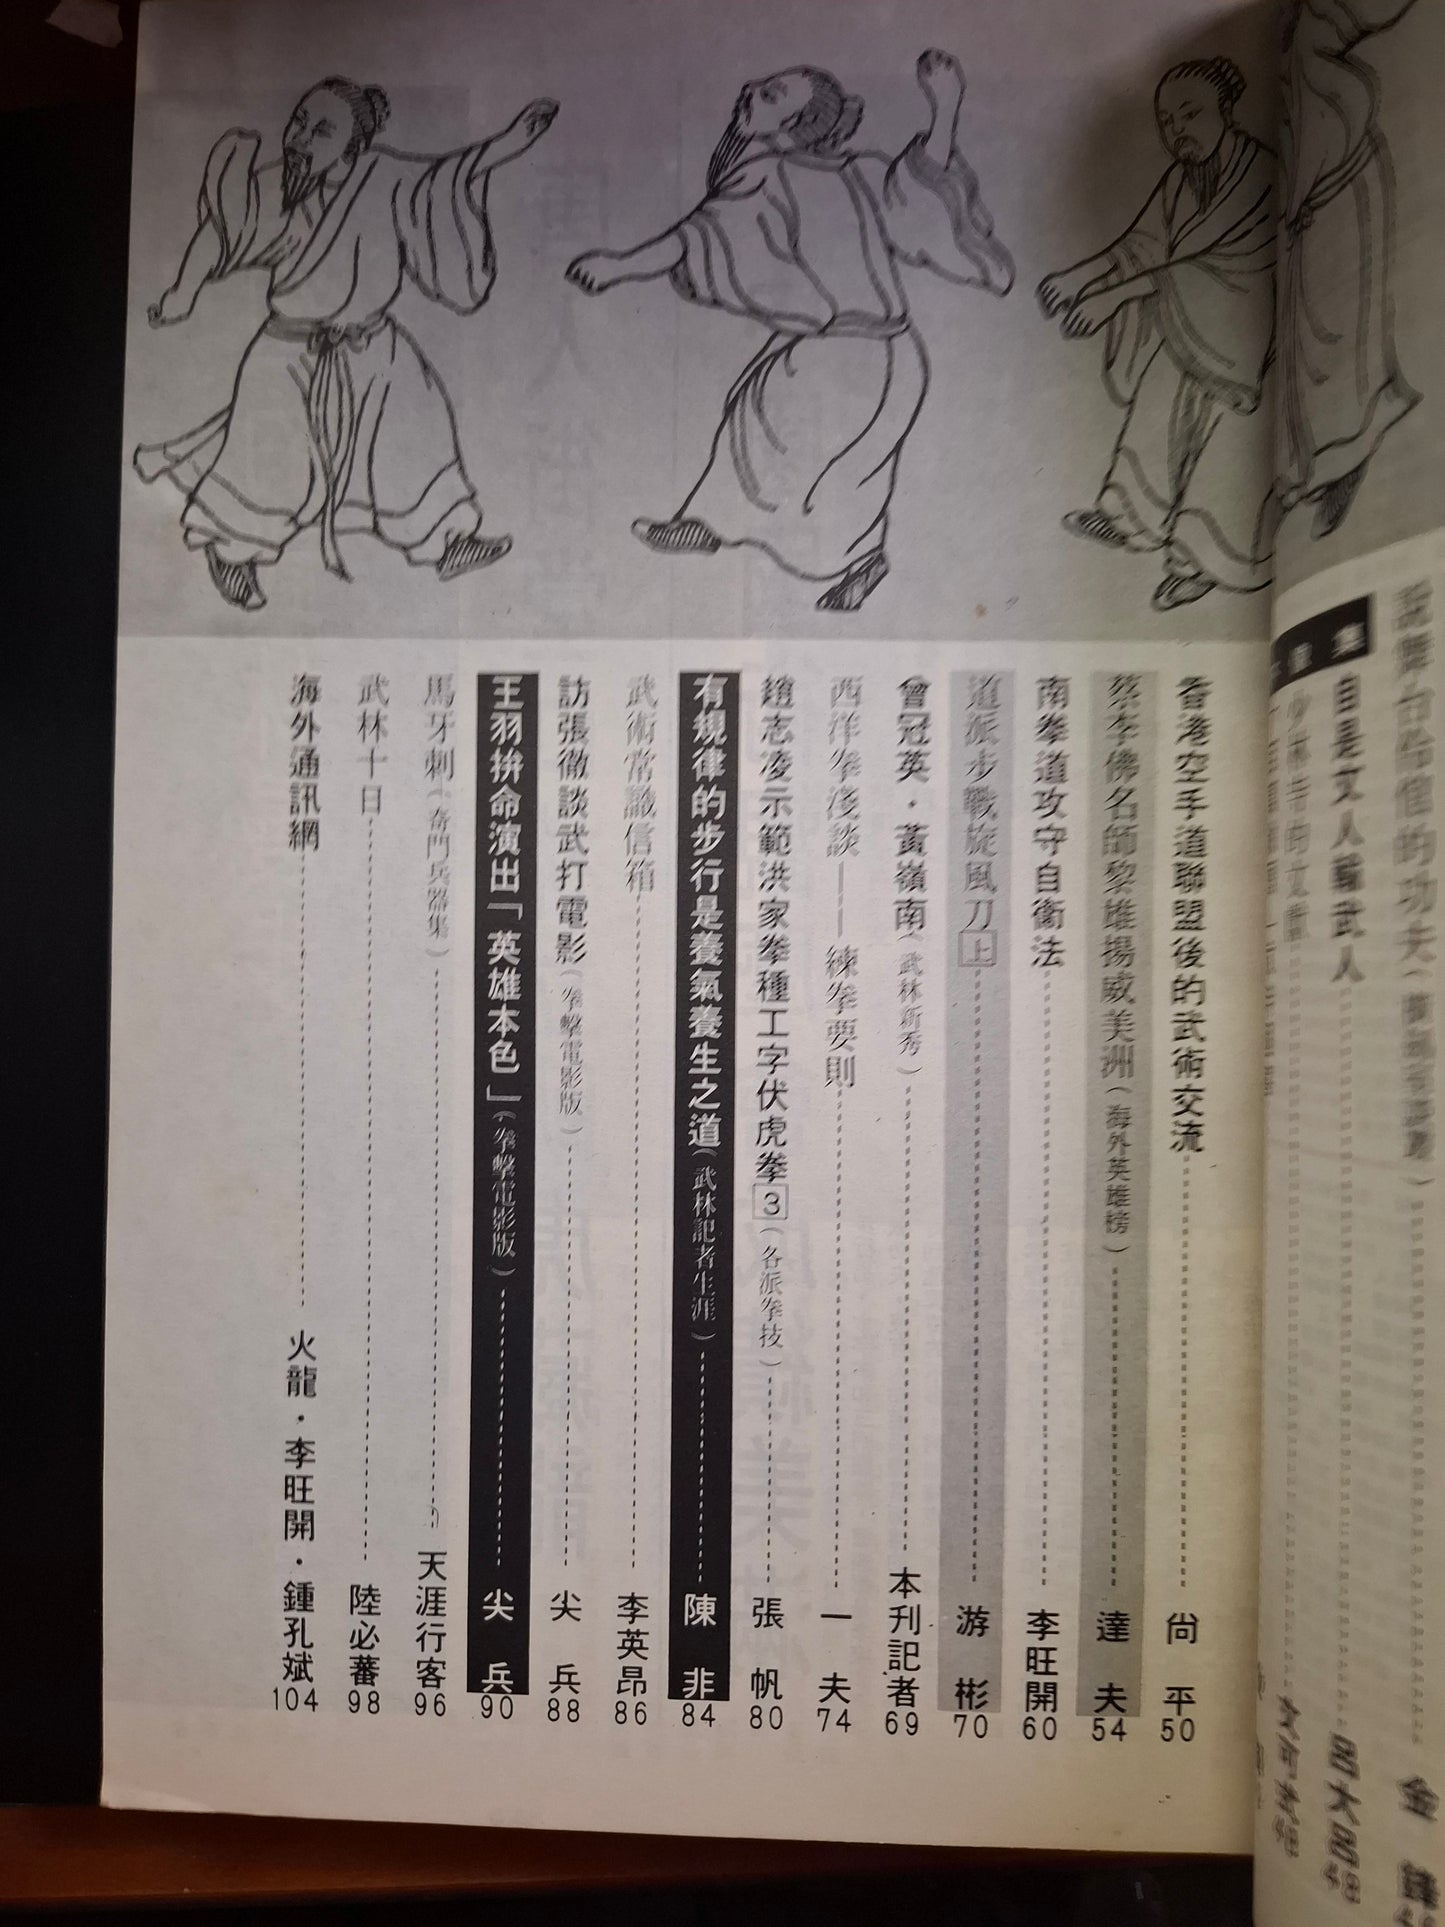 自是文人輸武人
香港空手道聯盟後的武術交流 尙平 50
蔡李佛名師黎雄揚威美洲(海外英雄榜) 達夫 54
南拳道攻守自衞法 李旺開 60
道派步戰旋風刀上 游彬 70
曾冠英・黃嶺南(武林新秀) 本刊記者 69
西洋拳淺談——練拳要則 一夫 74
趙志凌示範洪家拳種工字伏虎拳3(各派拳技) 張帆 80
有規律的步行是養氣養生之道(武林記者生涯) 陳非 84
武術常識信箱 李英昂 86
訪張徹談武打電影(拳擊電影版) 尖兵 88
王羽拚命演出「英雄本色」(拳擊電影版) 尖兵 90
馬牙刺(奇門兵器集) 天涯行客 96
武林十日 陸必蕃 98
海外通訊網 火龍・李旺開・鍾孔斌 104